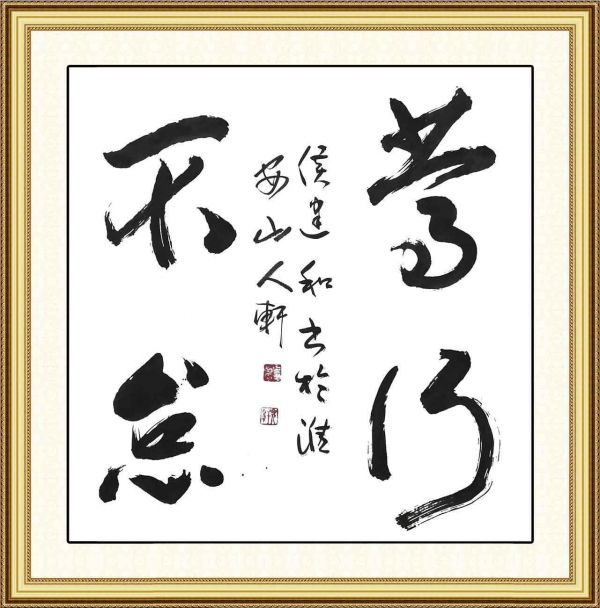 笃行
不怠
侯建和书於淮
安山人軒